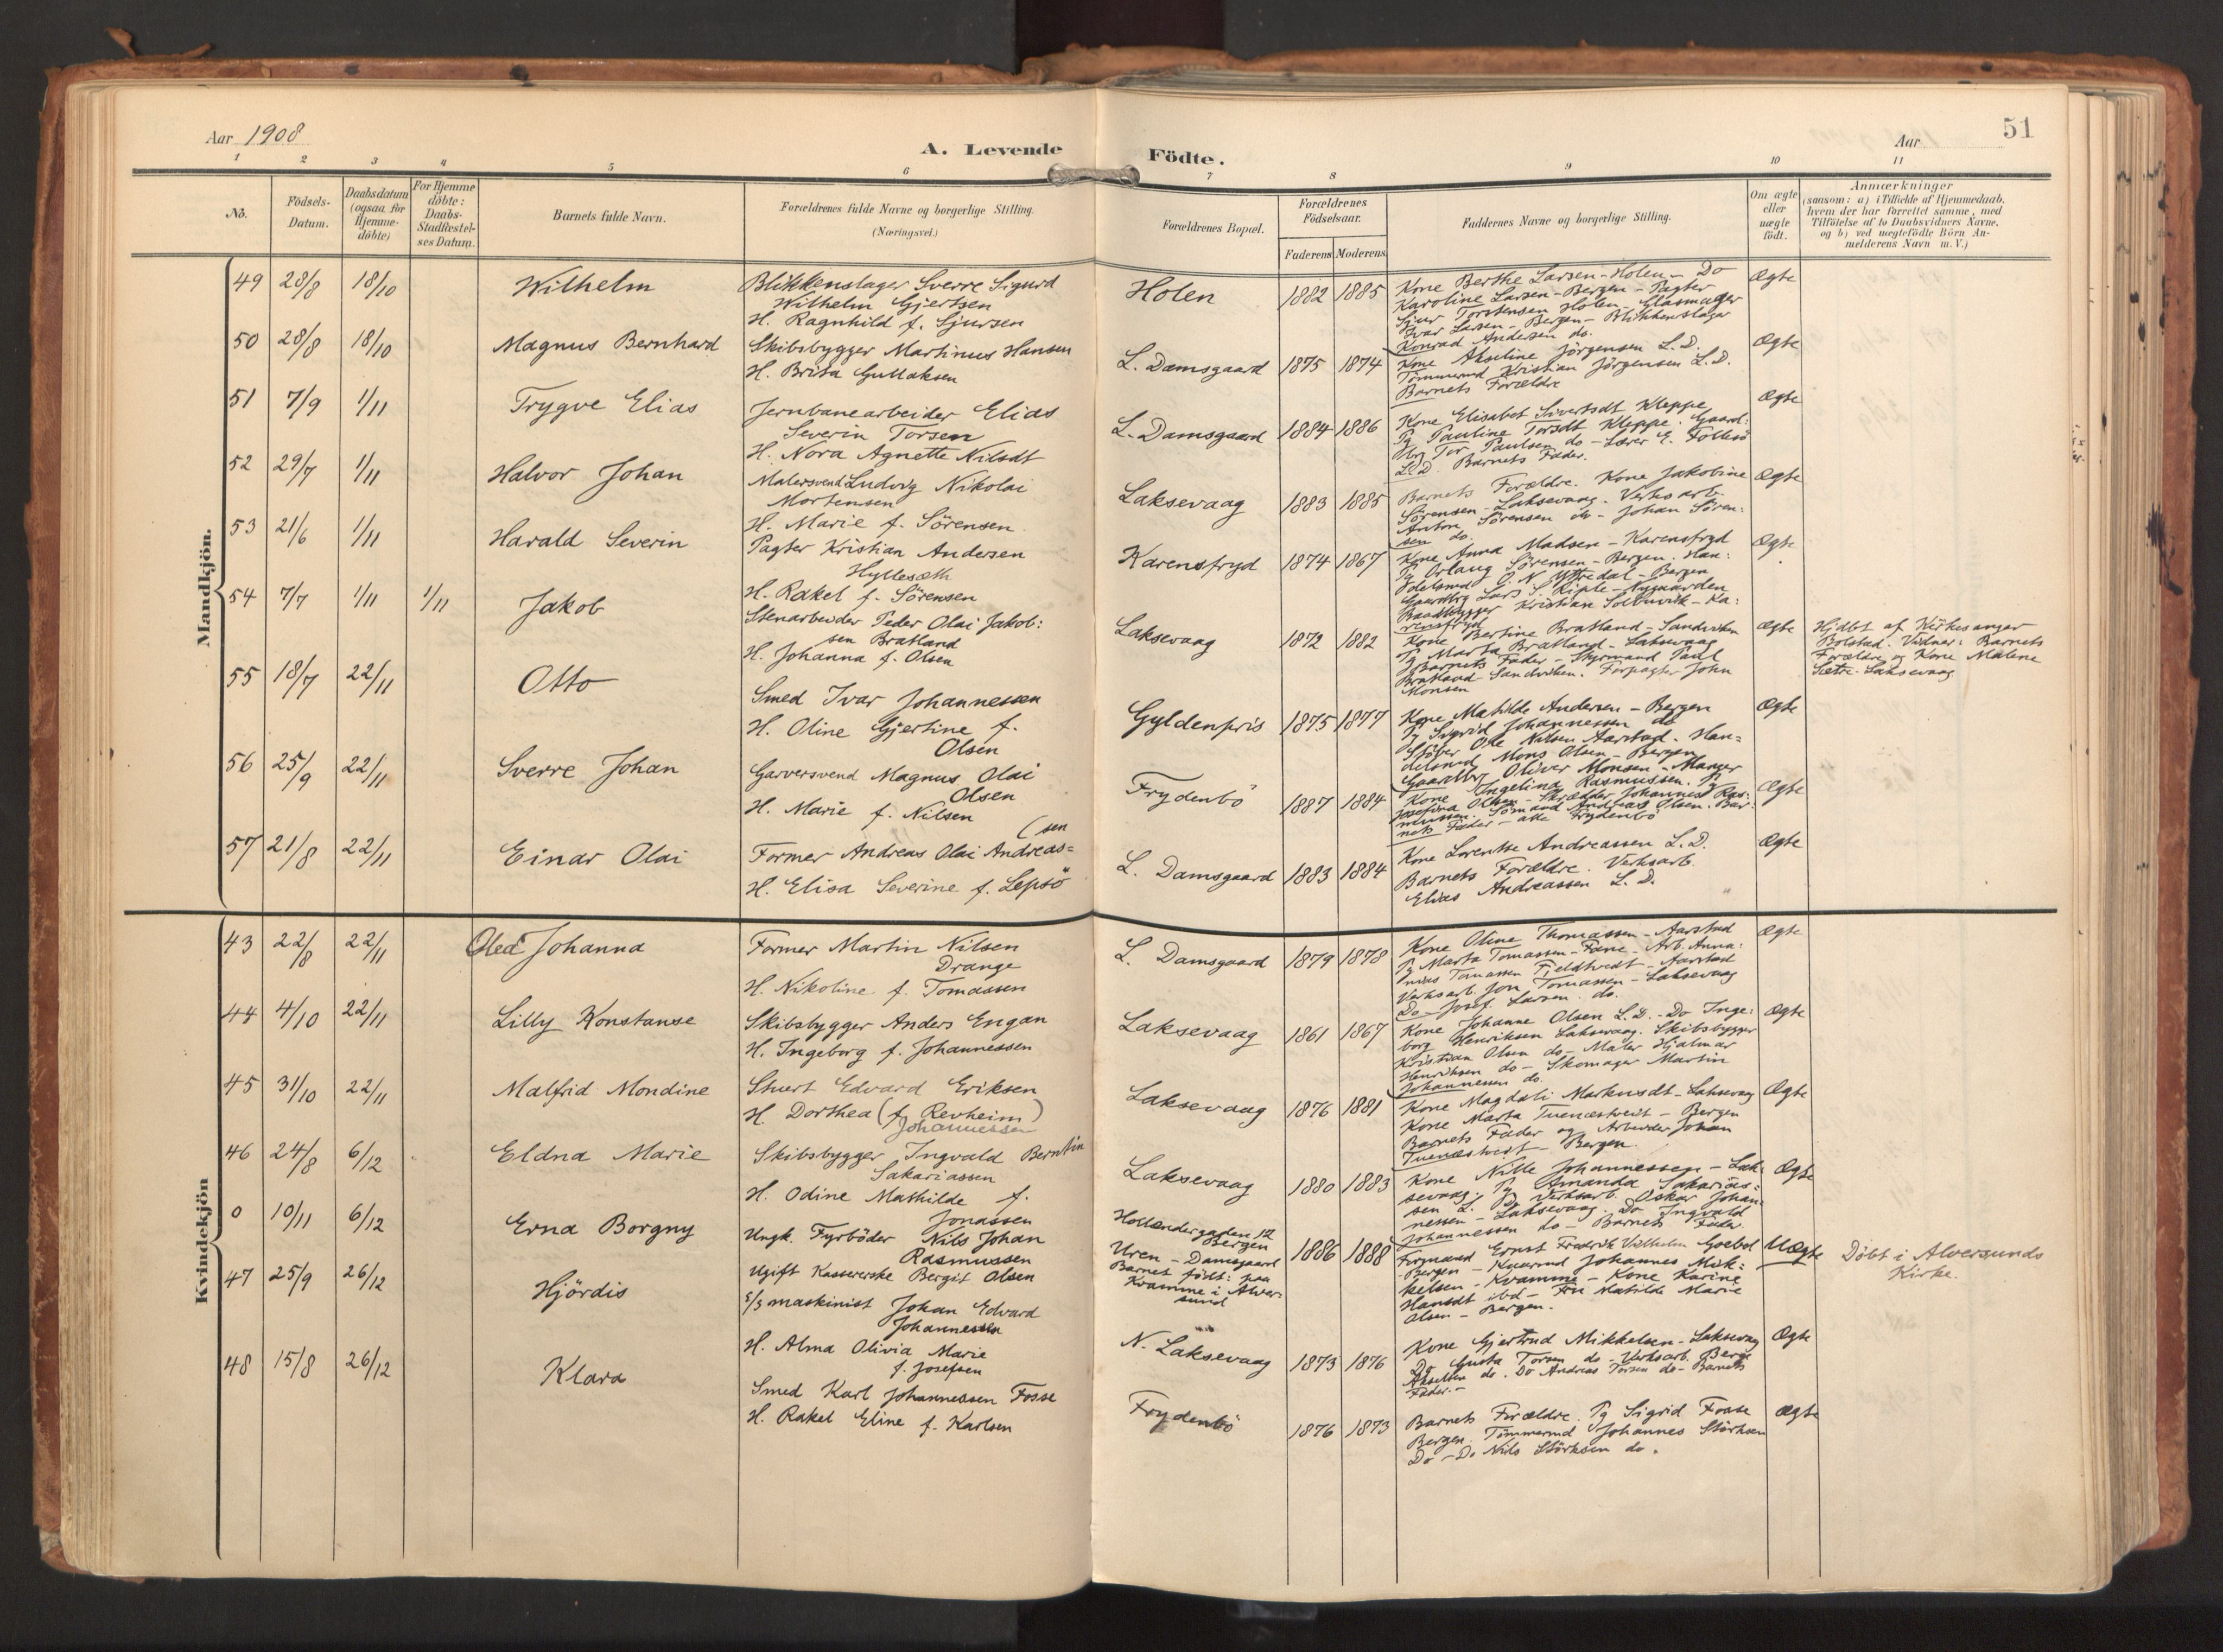 Aar 1908
A. Levende
1 2 3 4 5 6
No.
Födsels-
Datum.
Daabsdatum
(ogsaa for
Hjemme-
döbte)
For Hjemme
döbte:
Daabs-
Stadfæstel-
ses Datum.
Barnets fulde Navn.
Forældrenes fulde Navne og borgerlige Stilling.
(Næringsvei.)
Mandkjön.
49 28/8 18/10 Wilhelm Blikkenslager Sverre Sigurd
Wilhelm Gjertsen
H. Ragnhild f. Sjursen
50 28/8 18/10 Magnus Bernhard Skibsbygger Martinus Hansen
H. Brita Gullaksen
51 7/9 1/11 Trygve Elias Jernbanearbeider Elias
Severin Torsen
H. Nora Agnette Nilsdt
52 29/7 1/11 Halvor Johan Malersvend Ludvig Nikolai
Mortensen
H. Marie f. Sörensen
53 21/6 1/11 Harald Severin Pagter Kristian Andersen
Hyllesæth
H. Rakel f. Sörensen
54 7/7 1/11 1/11 Jakob Stenarbeider Peder Olai Jakob:
sen Bratland
H. Johanna f. Olsen
55 18/7 22/11 Otto Smed Ivar Johannessen
H. Oline Gjertine f.
Olsen
56 25/9 22/11 Sverre Johan Garversvend Magnus Olai
Olsen
H. Marie f. Nilsen
57 21/8 22/11 Einar Olai (sen
Former Andreas Olai Andreas=
H. Elisa Severine f. Lepsö
Kvindekjön
43 22/8 22/11 Olea Johanna Former Martin Nilsen
Drange
H. Nikoline f. Tomassen
44 4/10 22/11 Lilly Konstanse Skibsbygger Anders Engan
H. Ingeborg f. Johannessen
45 31/10 22/11 Malfrid Mondine Stuert Edvard Eriksen
H. Dorthea (f. Revheim)
Johannessen
46 24/8 6/12 Eldna Marie Skibsbygger Ingvald Berntin
Sakariassen
H. Odine Mathilde f.
Jonassen
0 10/11 6/12 Erna Borgny Ungk. Fyrböder Nils Johan
Rasmussen
Ugift Kassererske Bergit Olsen
47 25/9 26/12 Hjördis S/S maskinist Johan Edvard
Johannessen
H. Alma Olivia Marie
f. Josefsen
48 15/8 26/12 Klara Smed Karl Johannessen Fosse
H. Rakel Eline f. Karlsen
Födte.
Aar
51
7 8 9 10 11
Forældrenes Bopæl.
Forældrenes
Födselsaar.
Faderens Moderens
Faddernes Navne og borgerlige Stilling.
Om ægte
eller
uægte
födt.
Anmærkninger
(saasom: a) i Tilfælde af Hjemmedaab,
hvem der har forrettet samme, med
Tilföielse af to Daabsvidners Navne,
og b) ved uægtefödte Börn An-
melderens Navn m. V.)
Holen 1882 1885 Kone Berthe Larsen-Holen- Do Ægte
Karoline Larsen-Bergen-Pagter
Sjur Torstensen Holen-Glasmager
Ivar Larsen-Bergen-Blikkenslager
Konrad Andersen do.
L. Damsgaard 1875 1874 Kone Akseline Jörgensen L.D. Ægte
Tömmermd Kristian Jörgensen L.D.
Barnets Forældre
L. Damsgaard 1884 1886 Kone Elisabet Sivertsdt Kleppe Ægte
Pg Pauline Torsdt Kleppe. Gaard:
brg Tor Paulsen do-Lærer E. Follesö
L.D. Barnets Fader.
Laksevaag 1883 1885 Barnets Forældre. Kone Jakobine Ægte
Sörensen-Laksevaag. Verksarb.
Anton Sörensen do-Johan Sören:
sen do.
Karensfryd 1874 1867 Kone Anna Madsen-Karensfryd Ægte
Pg Sörensen-Bergen. Han:
delsmd O. N. Yttredal-Bergen
Gaardbrg Lars S. Riple-Nygaarden
Baadbygger Kristian Solbuvik-Ka:
rensfryd
Laksevaag 1872 1882 Kone Bertine Bratland-Sandviken Ægte
Pg Marta Bratland-Laksevaag
Barnets Fader-Styrmand Paul
Bratland-Sandviken. Forpagter John
Monsen
Hjdbt af Kirkesanger
Bolstad. Vidner: Barnets
Forældre og Kone Malene
Sætre-Laksevaag
Gyldenpris 1875 1877 Kone Matilde Andersen-Bergen Ægte
Pg Sigrid Johannessen do
Stöber Ole Nilsen Aarstad. Han=
delsmd Mons Olsen-Bergen
Gaardbrg Oliver Monsen-Manger
Frydenbö 1887 1884 Kone Ingelina Rasmussen. Pg Ægte
Josefina Olsen-Skrædder Johannes Ras:
mussen. Sömand Andreas Olsen. Bar:
nets Fader-alle Frydenbö
L. Damsgaard 1883 1884 Kone Lorentse Andreassen L.D. Ægte
Barnets Forældre. Verksarb.
Elias Andreassen L.D.
L. Damsgaard 1879 1878 Kone Oline Thomassen-Aarstad Ægte
Pg Marta Tomassen-Fane-Arb. Anna:
nias Tomassen Fjeldtvedt-Aarstad
Verksarb. Jon Tomassen-Laksevaag
Do-Josef Larsen do.
Laksevaag 1861 1867 Kone Johanne Olsen L.D.-Do Inge: Ægte
borg Henriksen Laksevaag. Skibsbygger
Kristian Olsen do-Maler Hjalmar
Henriksen do-Skomager Martin
Johannessen do.
Laksevaag 1876 1881 Kone Magdali Markusdt-Laksevaag Ægte
Kone Marta Tuenæstvedt-Bergen
Barnets Fader og Arbeider Johan
Tuenæstvedt-Bergen.
Laksevaag 1880 1883 Kone Nille Johannessen-Lak: Ægte
sevaag. Pg Amanda Sakarias=
sen L. Pg Verksarb. Oskar Johan:
nessen-Laksevaag. Do Ingvald
Johannessen do-Barnets Fader.
Hollændergaden 12
Bergen
Uren-Damsgaard
Barnet födt: paa
Kvamme i Alver:
sund
1886 1888 Firmand Ernst Fredrik Vilhelm Goebel Uægte
-Bergen-Kvarmd Johannes Mik:
kelsen-Kvamme-Kone Karine
Hansdt ibd-Frk Matilde Marie
Olsen-Bergen.
Döbt i Alversunds
Kirke.
N. Laksevaag 1873 1876 Kone Gjertrud Mikkelsen-Laksevaag Ægte
Do Gusta Torsen do-Verksarb. Berge
Akselsen do. Do Andreas Torsen do-Barnets
Fader.-
Frydenbö 1876 1873 Barnets Forældre. Pg Sigrid Fosse Ægte
Bergen. Tömmermd Johannes Störksen
Do-Do Nils Störksen do.